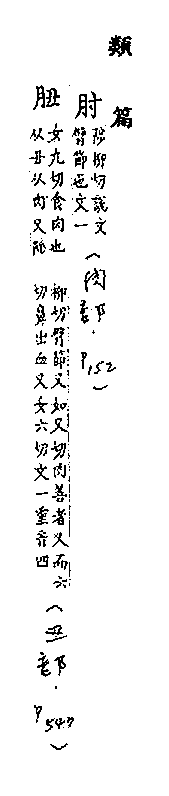 類篇
肘
陟柳切說文
臂節也文一
(肉部.P152)
䏔
女九切食肉也
从丑从肉又陟
柳切臂節又如又切肉善者又而六
切鼻出血又女六切文一重音四
(丑部.P547)